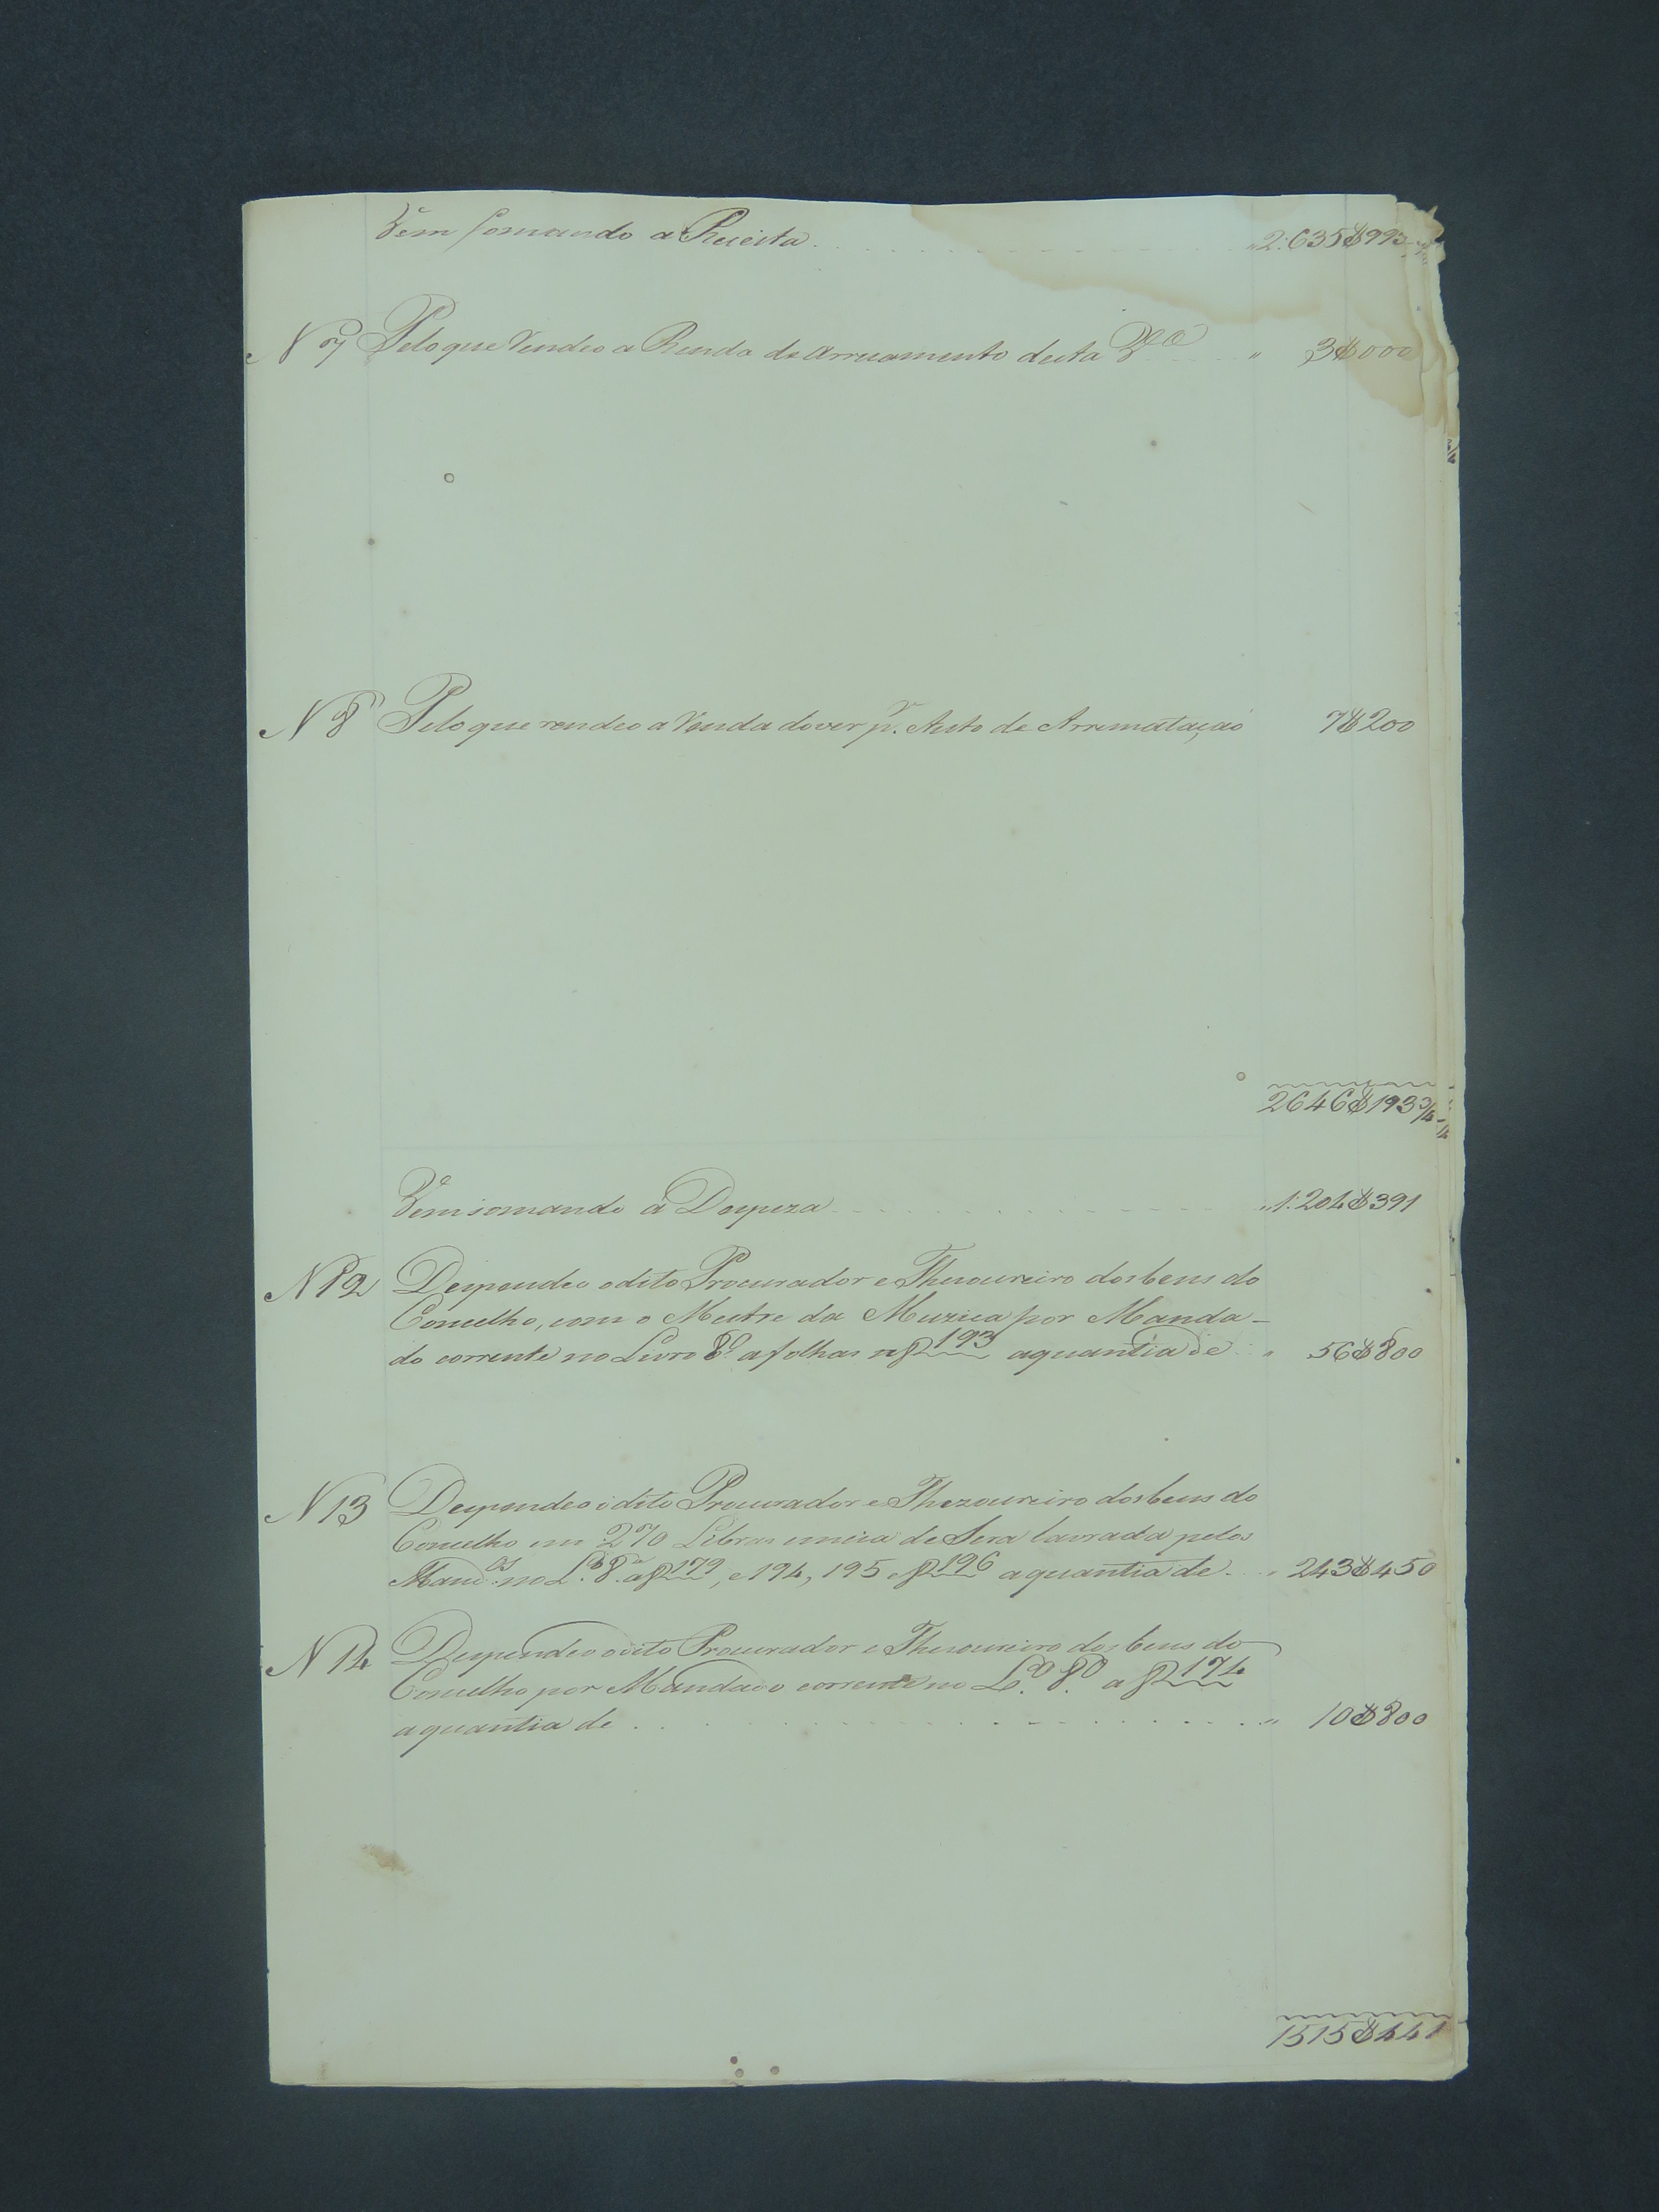 Vem somando a Receita . . . . . . . . 2:635$993 3/4
N 7 Pelo que Rendeo a Renda do arruamento desta Vª " 3$000
N 8 Pelo que rendeo a Venda do ver pr. Auto de Arrematação 7$200
2646$193 3/4
Vem somando a Despeza . . . . . . . . 1:204$391
N 12 Despendeo o dito Procurador e Thesoureiro dos bens do
Concelho, com o Mestre da Muzica por Manda-
do corrente no Livro 8º a folhas 193 a quantia de " 56$800
N 13 Despendeo o dito Procurador e Thezoureiro dos bens do
Concelho em 270 Libras e meia de Sera lavrada pelos
Mandos. no Lo. 8º a f 179, e 194, 195 e f 196 a quantia de . . " 243$450
N 14 Despendeo o dito Procurador e Thesoureiro dos bens do
Concelho por Mandado corrente no Lo. 8º. a f 174
a quantia de . . . . . . . . . . " 10$800
1515$441